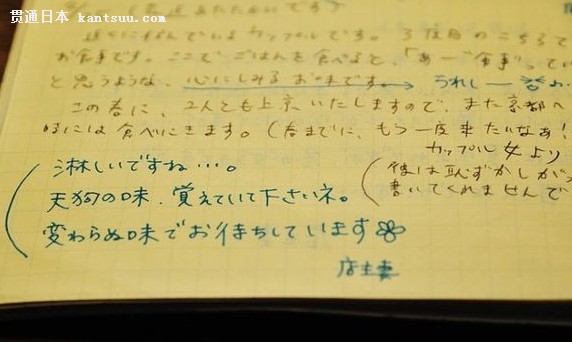 貫通日本 kantsuu.com
(最近あたたかいです)
近くに住んでいるカップルです。3度目のこちらで
お食事です。ここでごはんを食べると、「あー食事」ってい
と思うような、心にしみるお味です。→うれしー
この春に、2人とも上京いたしますので、また京都へ
時には食べにきます。(春までに、もう一度来たいなぁ!
カップル女より
(彼は恥ずかしがっ
書いてくれませんで
淋しいですね…。
天狗の味、覚えていて下さいネ。
変わらぬ味でお待ちしています
店主妻